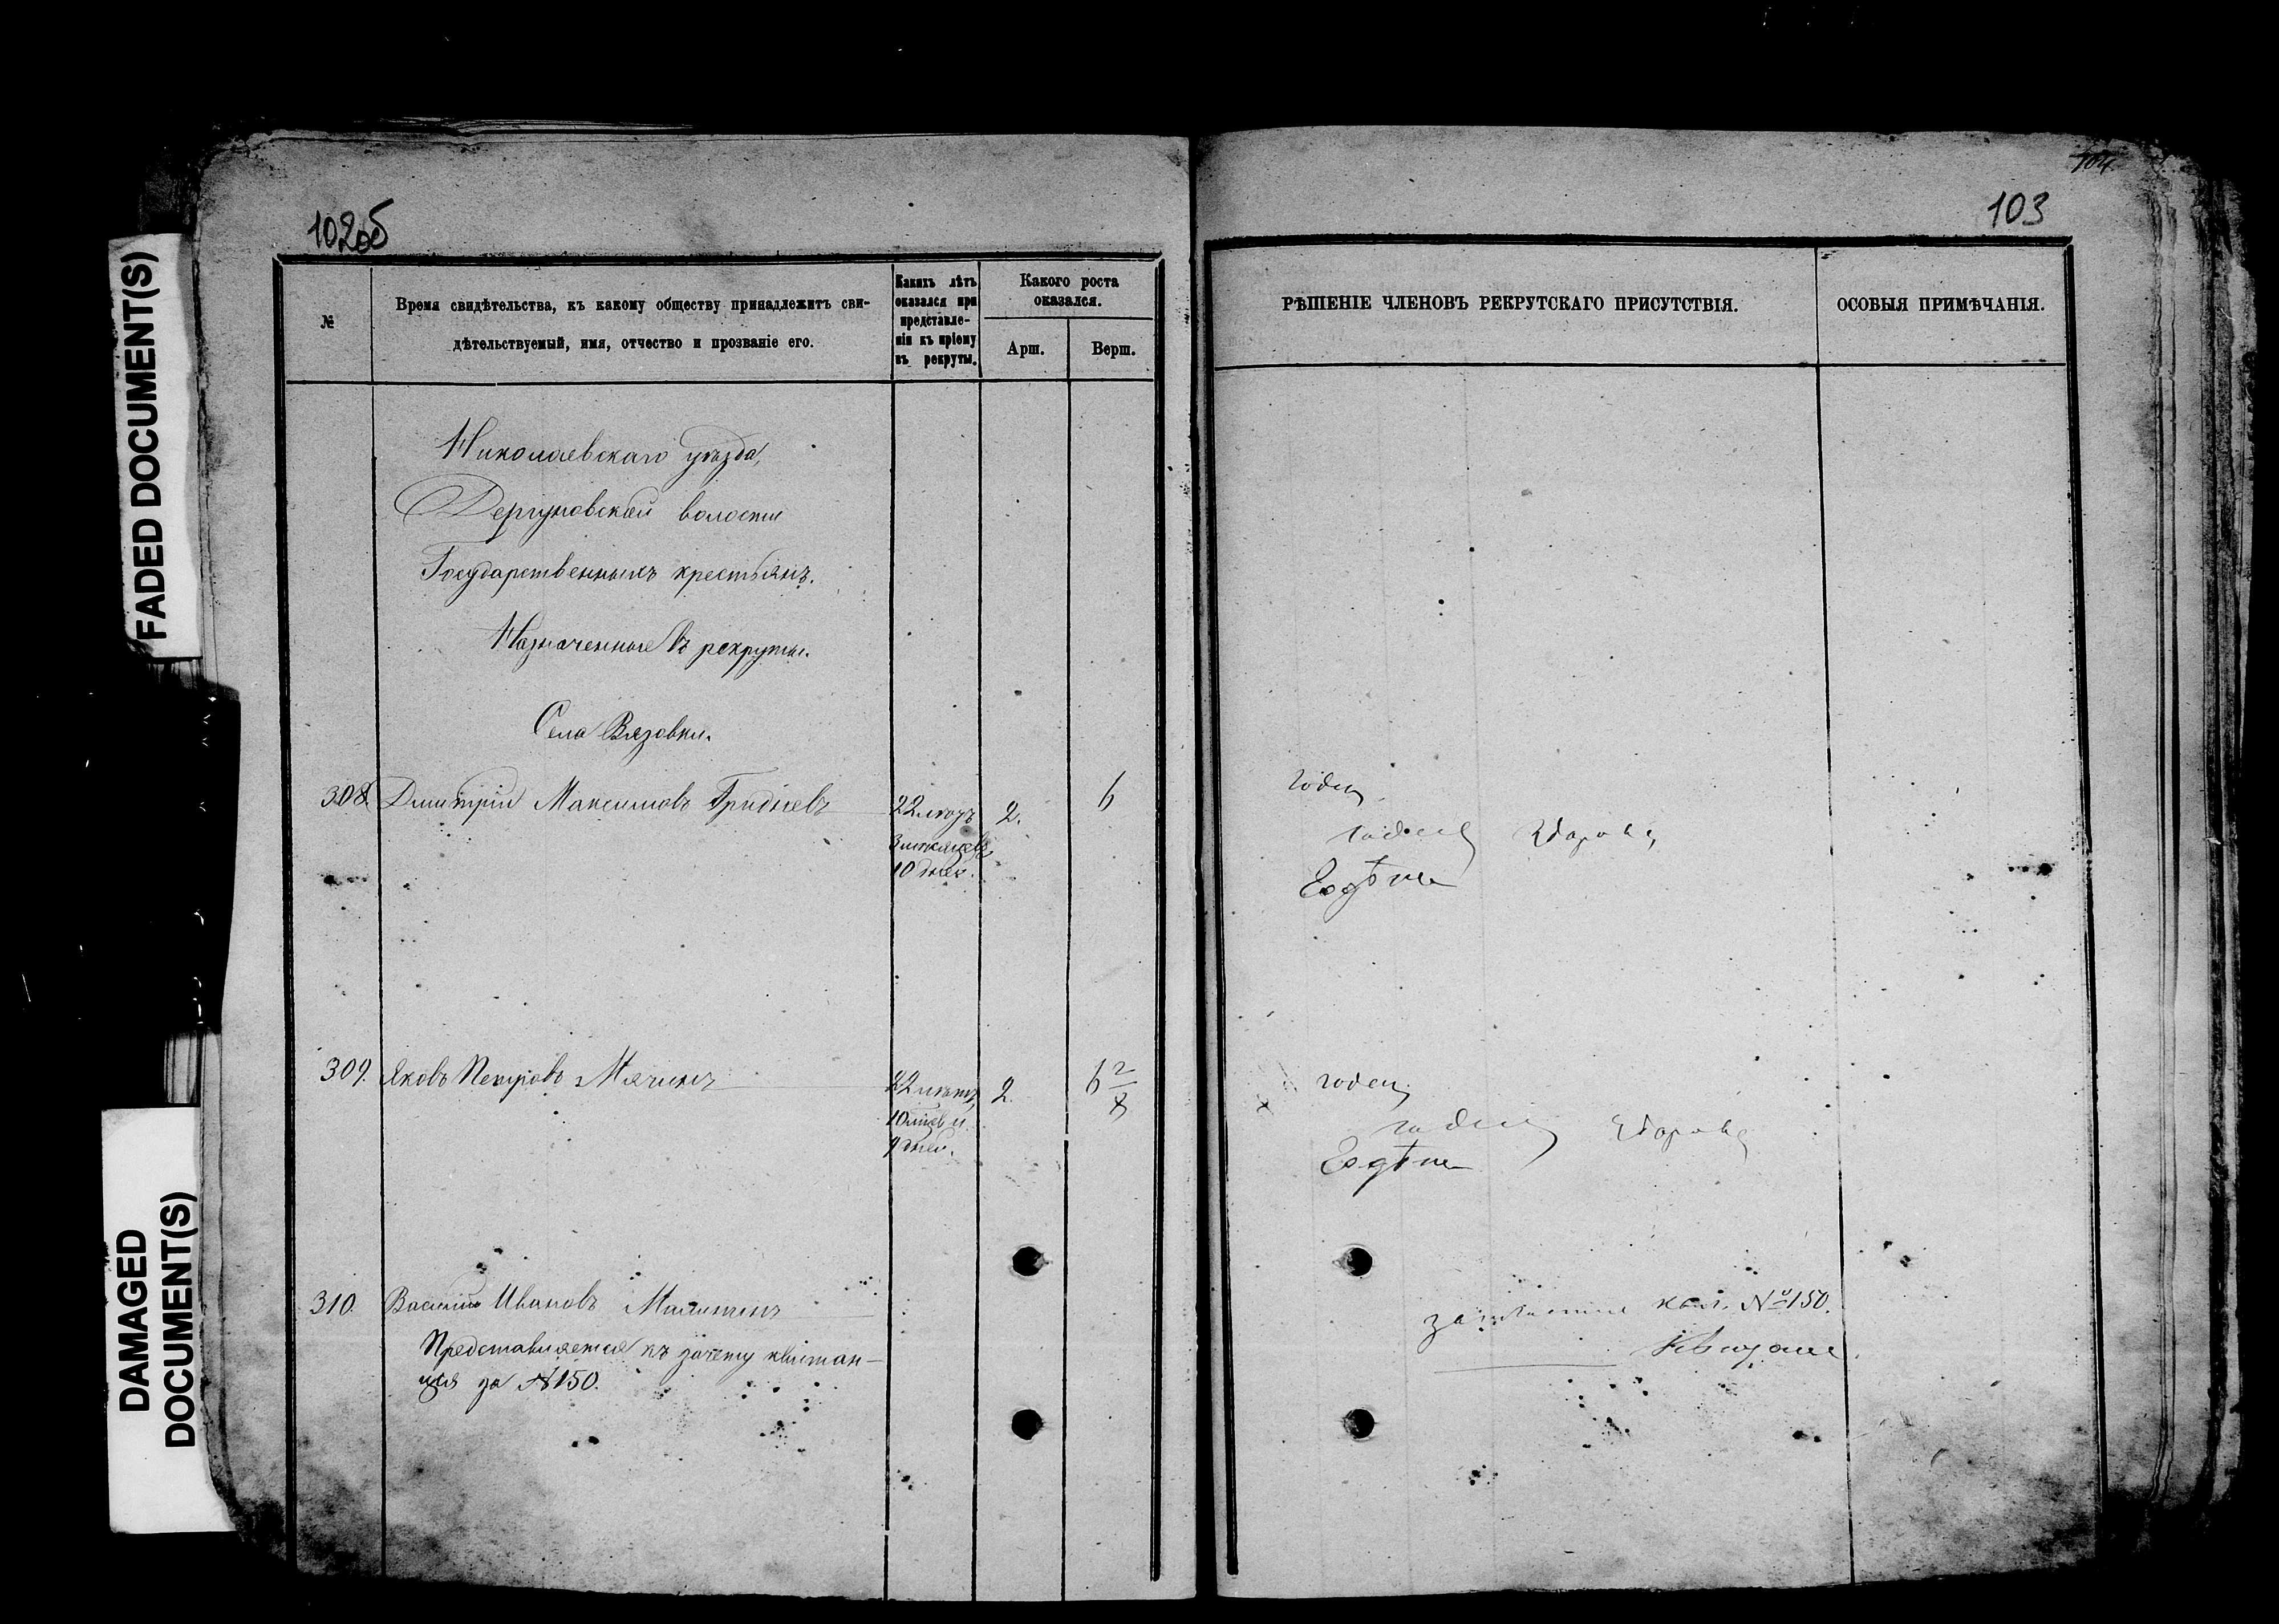 FADED DOCUMENT(S)
DAMAGED
DOCUMENT(S)
102об
№
Время свидѣтельства, къ какому обществу принадлежитъ сви-
дѣтельствуемый, имя, отчество и прозваніе его.
Какихъ лѣтъ
оказался при
представле-
ніи къ пріему
въ рекруты.
Какого роста
оказался.
Арш.
Верш.
Николаевскаго уѣзда,
Дергуновской волости
Государственныхъ крестьянъ.
Назначенные въ рекруты.
Села Вязовки.
308. Дмитрій Максимовъ Гридневъ
22 2. 6
10 дней.
309. Яковъ Петровъ Мячинъ
22 лѣтъ, 2. 6 2/8
10 мѣс. и
9 дней.
310. Василій Ивановъ
Представляется къ зачету квитан-
ція за №150.
104
103
РѢШЕНІЕ ЧЛЕНОВЪ РЕКРУТСКАГО ПРИСУТСТВІЯ.
ОСОБЫЯ ПРИМѢЧАНІЯ.
годенъ
годенъ здоровъ
годенъ
годенъ здоровъ
№150.